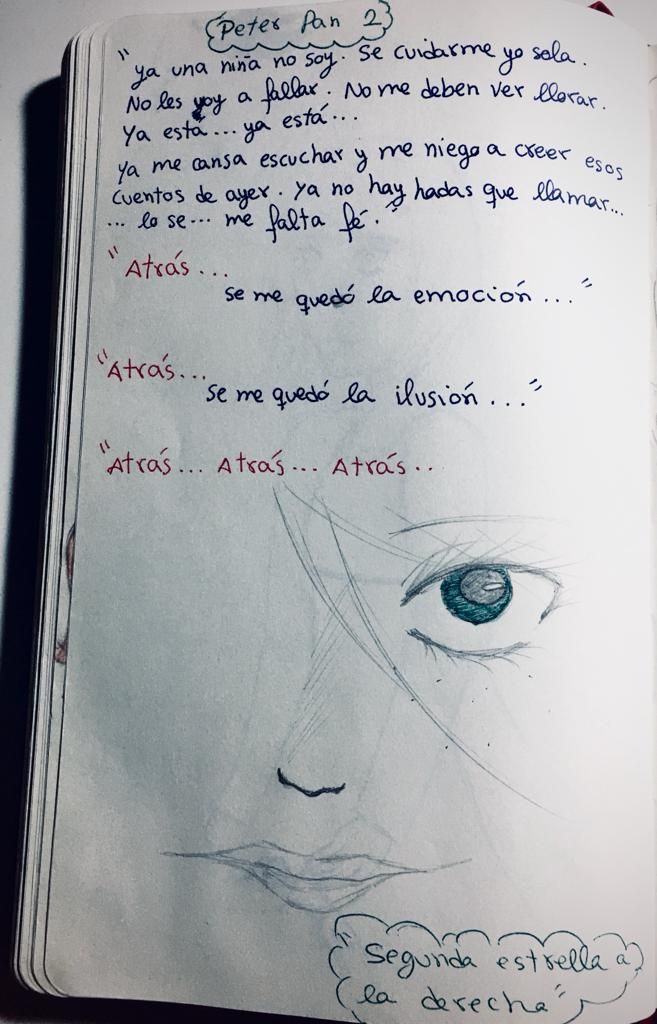 Peter Pan 2
"Ya una niña no soy. Se cuidarme yo sola.
No les voy a fallar. No me deben ver llorar.
Ya está... ya está...
Ya me cansa escuchar y me niego a creer esos
cuentos de ayer. Ya no hay hadas que llamar...
... lo se... me falta fé."
"Atrás...
se me quedó la emoción ..."
"Atrás...
se me quedó la ilusión ..."
"Atrás... Atrás... Atrás..
"Segunda estrella a
la derecha"